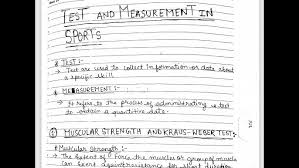 TEST AND MEASUREMENT IN
SPORTS
a) TEST:-
Test are used to collect information or data about
a specific skill
b) MEASUREMENT:-
It refers to the process of administrating a test to
obtain a quantitative data.
MUSCULAR STRENGTH AND KRAUS-WEBER TEST:-
Muscular Strength :-
The Extent of Force the muscles or groups of muscle
can Exert against resistance for short duration